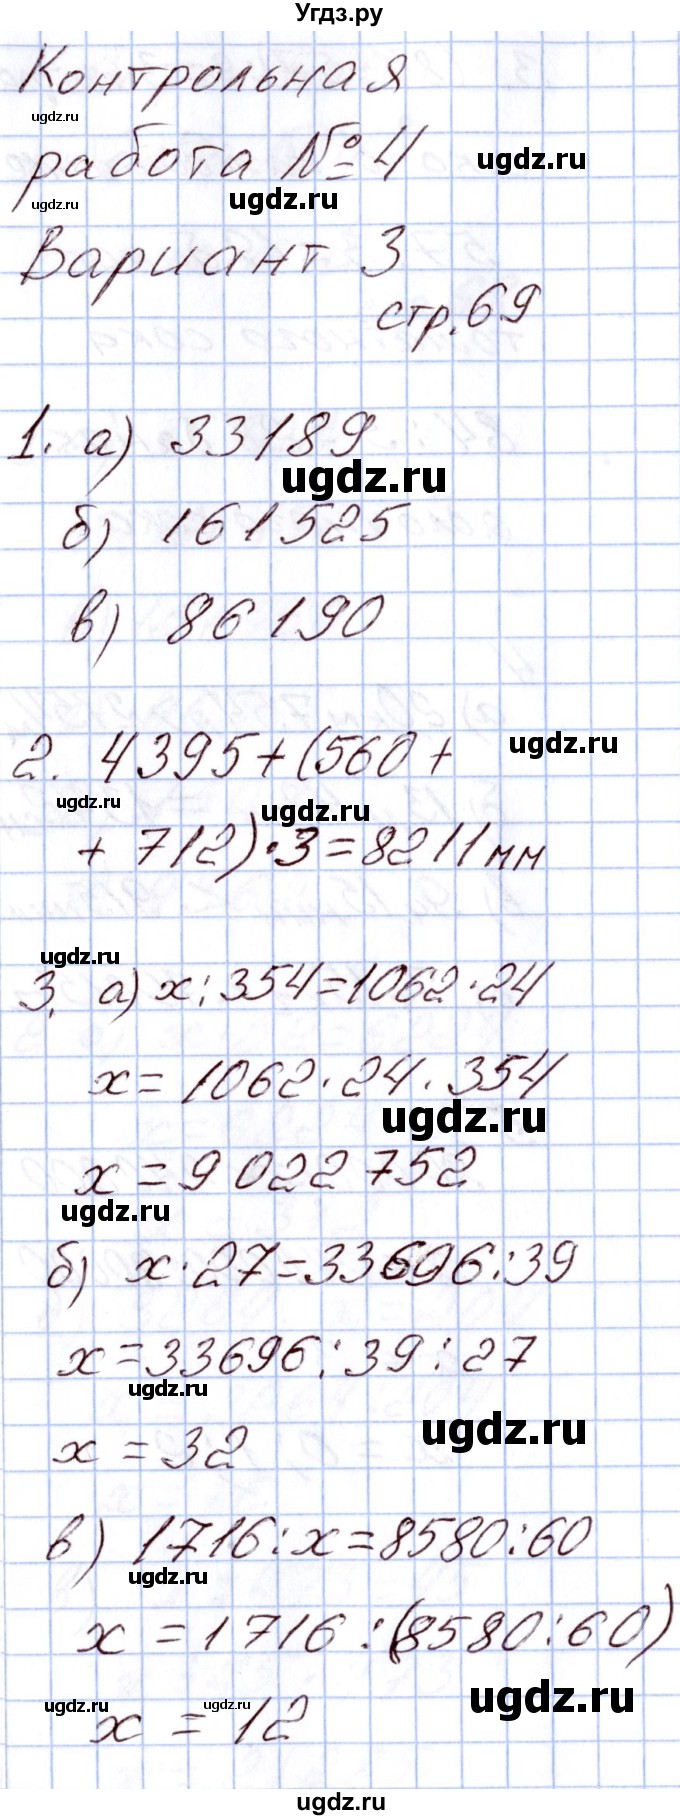 Угдз.ру
Контрольная
ugdz.ru
работа № 4
ugdz.ru
ugdz.ru
ugdz.ru
Вариант 3
стр. 69
1. а) 33189
ugdz.ru
б) 161525
в) 86190
ugdz.ru
2. 4395+(560+
ugdz.ru
ugdz.ru
+ 712)·3=8211мм
ugdz.ru
3. а) x:354=1062·24
x=1062·24·354
ugdz.ru
x=9022752
ugdz.ru
б) x·27=33696:39
x=33696:39:27
ugdz.ru
ugdz.ru
x=32
в) 1716:x=8580:60
ugdz.ru
x=1716:(8580:60)
ugdz.ru
ugdz.ru
ugdz.ru
x=12
ugdz.ru